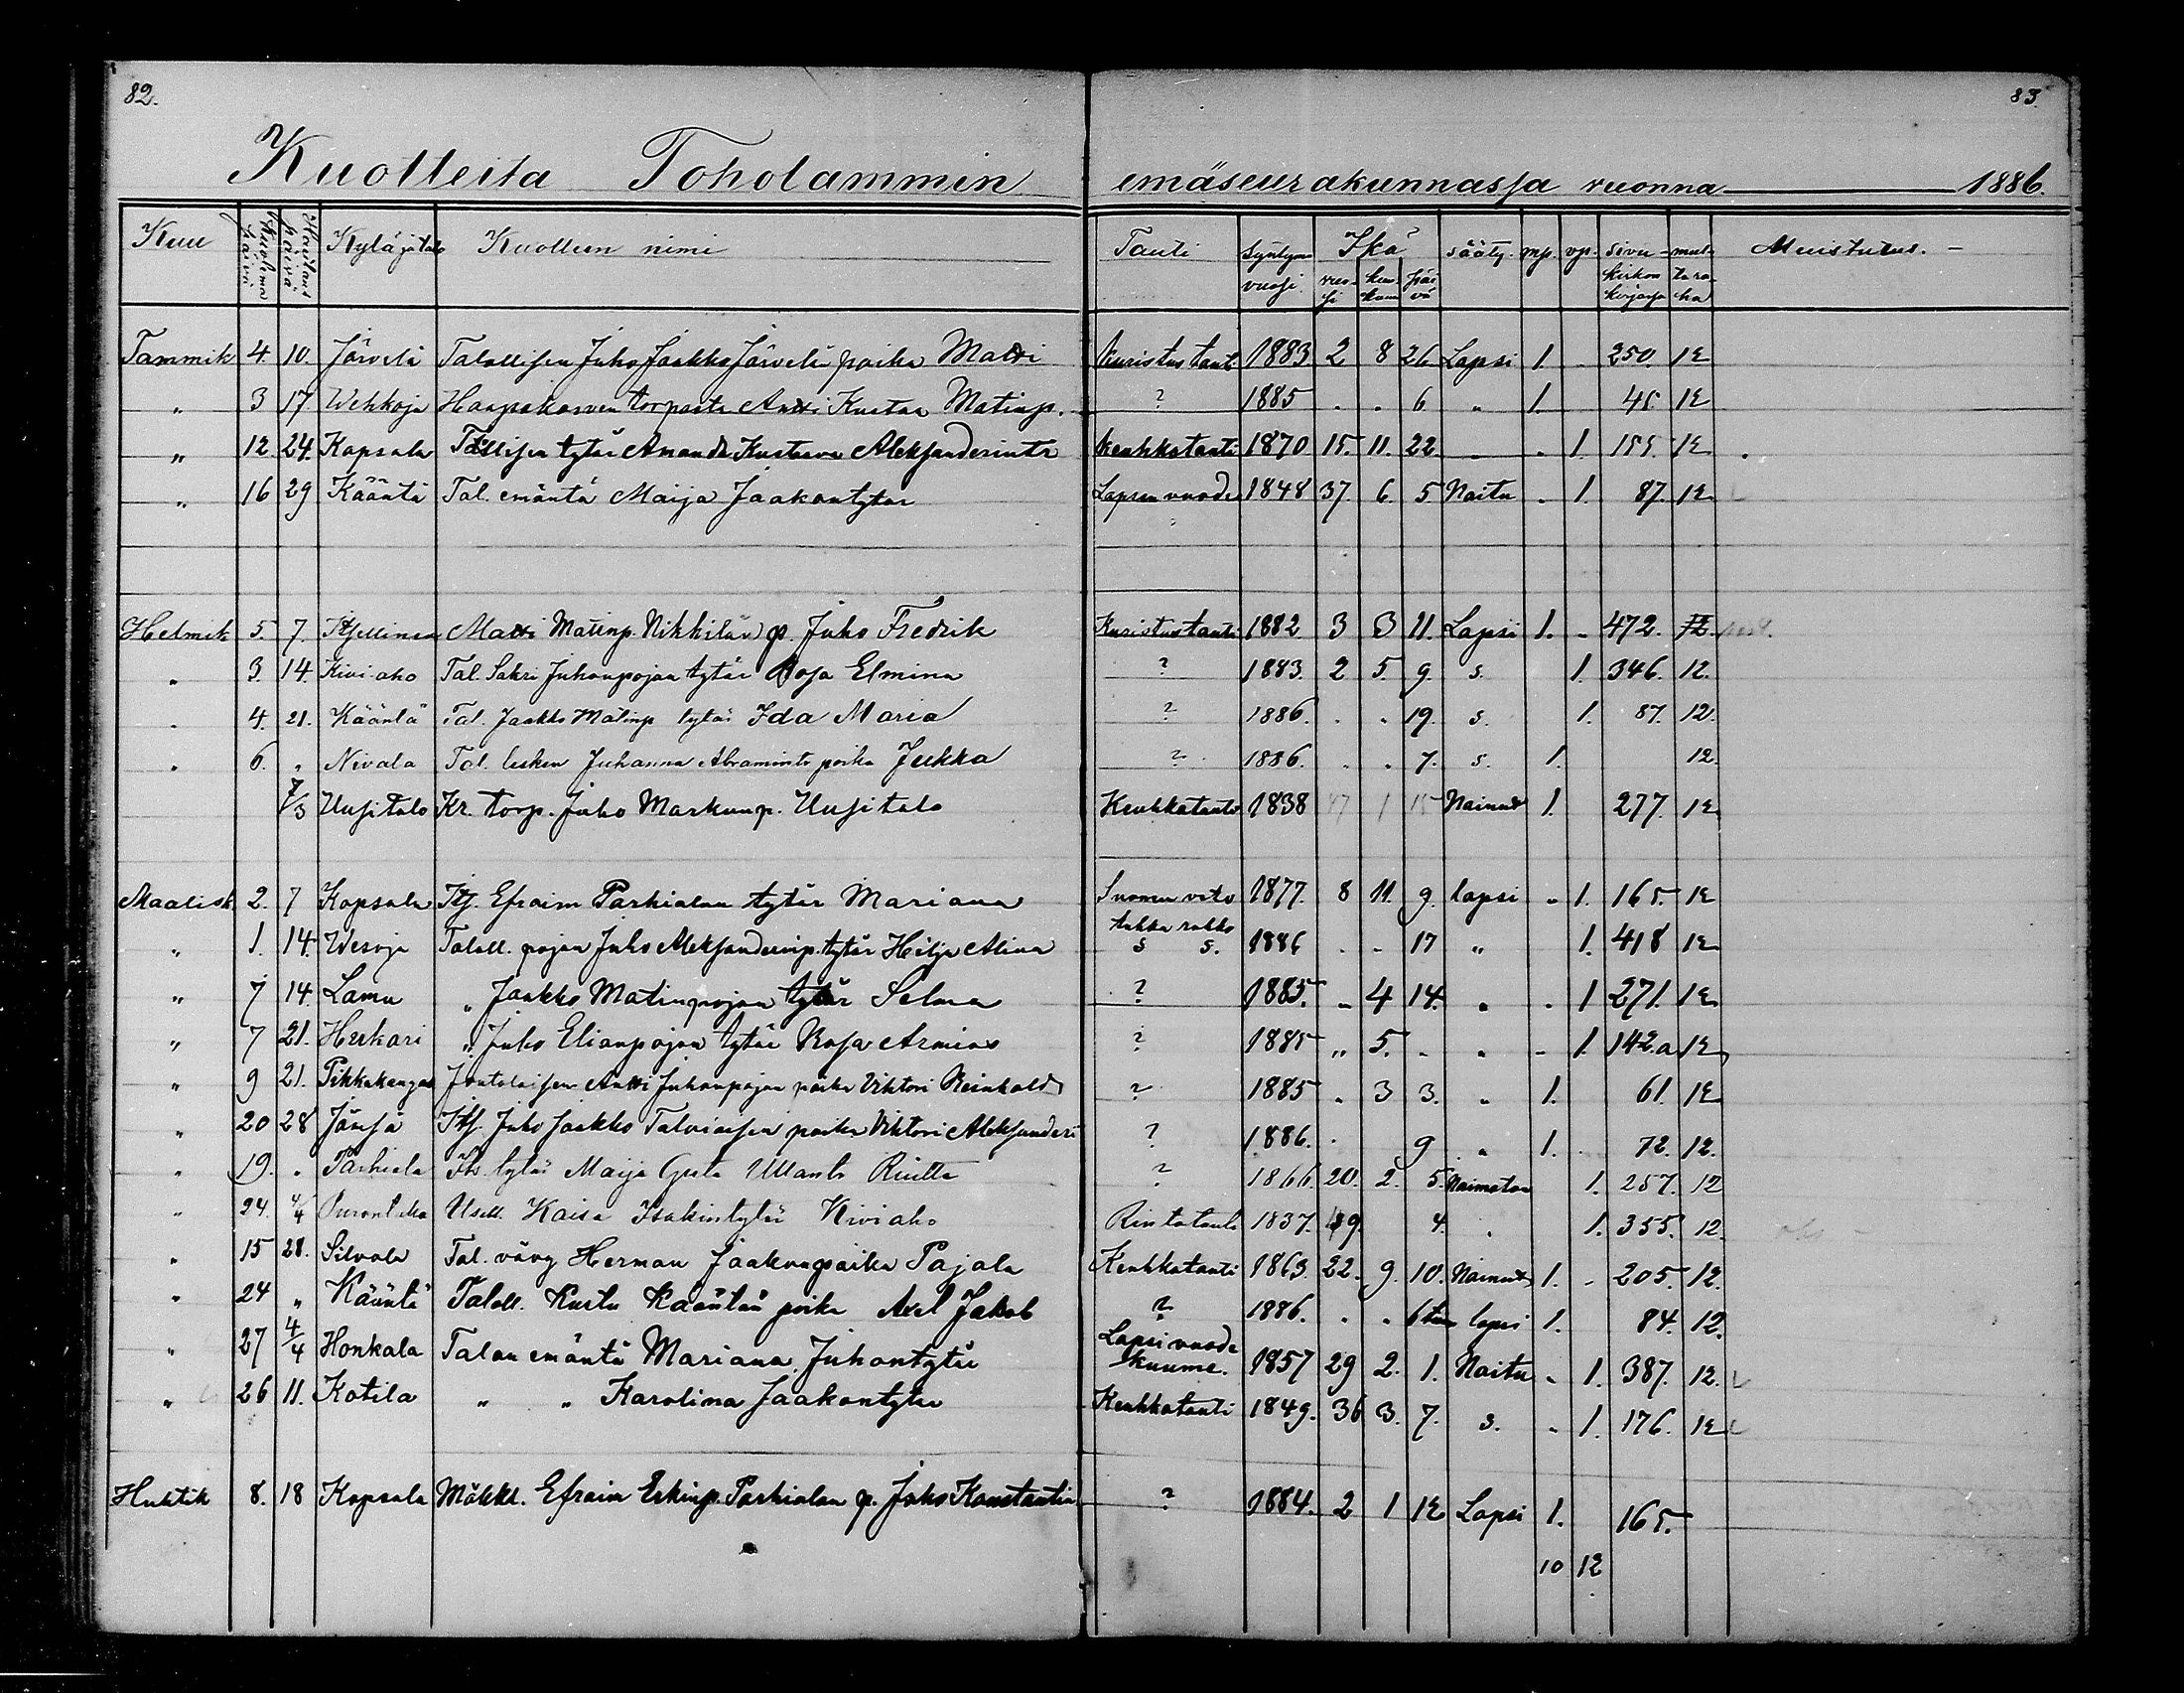 82.
83.
Kuolleita Toholammin emäseurakunnassa vuonna 1886.
Kuu Kuolema päivä Hautaus päivä Kylä ja talo Kuolleen nimi Tauti Syntym vuosi. Ikä vuosi kuukau päivä sääty. mp. vp. Sivu kirkon kirjassa multa Muistutus. -
Tammik 4. 10. Järvelä Talollisen Juho Jaakko Järvelän poika Matti Kuristus taut. 1883. 2 8 26 Lapsi 1. 250. 12
" 3 17. Wehkoja Haapakosven torpasta Antti Kustaa Matinp. ? 1885 " " 6 " 1. 12
" 12 24. Kopsala tytär Amanda Kustaava Aleksanderintr Keuhkotauti 1870 15. 11. 22 " " 1. 12
" 16 29 Kääntä Tal. emäntä Maija Jaakontytar Lapsenvuode 1848 37. 6. 5 Naitu " 1. 87. 12
Helmik 5. 7. Itsellinen Matti Matinp. Nikkilän p. Juho Fredrik Kuristustauti 1882 3 3 11. Lapsi 1. " 472. 12.
" 3. 14. Kivi-aho Tal. Sakri Juhonpojan tytär Rosa Elmina ? 1883. 2 5. 9. s. 1. 346. 12.
" 4. 21. Kääntä Tal. Jaakko Matinp tytär Ida Maria ? 1886. " " 19. s. 1. 87. 12.
" 6. " Nivala Tal. lesken Juhanna Abramintr poika Jukka ? 1886. " " 7. s. 1. 12.
7/3 Uusitalo Kr. torp. Juho Markunp. Uusitalo Keuhkotauti 1838 47 1 Nainut 1. 277. 12
Maalisk 2. 7 Kopsala Its. Efraim Parhialan tytär Mariana 1877. 8 11. 9. lapsi " 1. 165. 12
" 1. 14. Wesoja Taloll. pojan Juho Aleksanderinp. tytär Hilja Alina tukka rokko s s. 1886 " " 17 " 1. 418 12
" 7 14. Lamu " Jaakko Matinpojan tytär Selma ? 1885. " 4 14. " " 1 271. 12
" 7 21. Hirkari " Juho Elianpojan tytär Rosa ? 1885 " 5. " " " 1. 142.a 12
" 9 21. Pikkukangas Joutolaisen Antti Juhonpojan poika Viktori Reinhold ? 1885 " 3 3. " 1. 61. 12
" 20 28 Jämsä Its. Juho Jaakko Talviaisen poika Viktori Aleksanderi ? 1886. " 9 " 1. 72. 12.
" 19. " Parhiala Its. tytär Maija Greta Ullantr ? 1866. 20. 2. 5. Naimaton 1. 257. 12
" 24. 4/4 Usell. Kaisa Isakintytär Kiviaho Rintatauti 1837. 49. 4. " 1. 355. 12.
" 15 28. Silvola Tal. vävy Herman Jaakonpoika Pajala Keuhkotauti 1863. 22. 9. 10. Nainut 1. " 205. 12.
" 24 " Kääntä Taloll. Kustu Kääntän poika Axel Jakob ? 1886. " " 6 tun lapsi 1. 84. 12.
" 27 4/4 Honkala Talon emäntä Mariana Juhontytär Lapsivuode kuume. 1857 29 2. 1. Naitu " 1. 387. 12.
" 26 11. Kotila " " Karolina Jaakontytär Keuhkotauti 1849. 36 3. 7. s. " 1. 176. 12
Huhtik 8. 18 Kopsala Mökkl. Efraim Erkinp. Parhialan p. Juho Konstantin ? 1884. 2 1 12 Lapsi 1. 165.
10 12